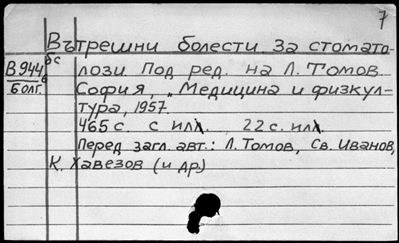 7
Вътрешни болести за стомато-
В944 вс лози Под ред. на Л. Томов
Болг. София, „Медицина и физкул-
тура, 1957.
465 с. с ил. 22 с. ил.
Перед загл. авт.: Л. Томов, Св. Иванов,
К. Хавезов (и др)